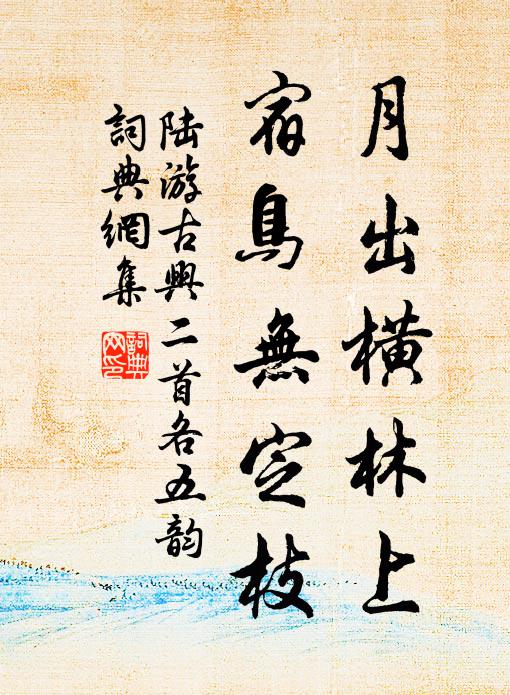 月出橫林上
宿鳥無定枝
陸游古興二首各五韵
詞典網集
詞典